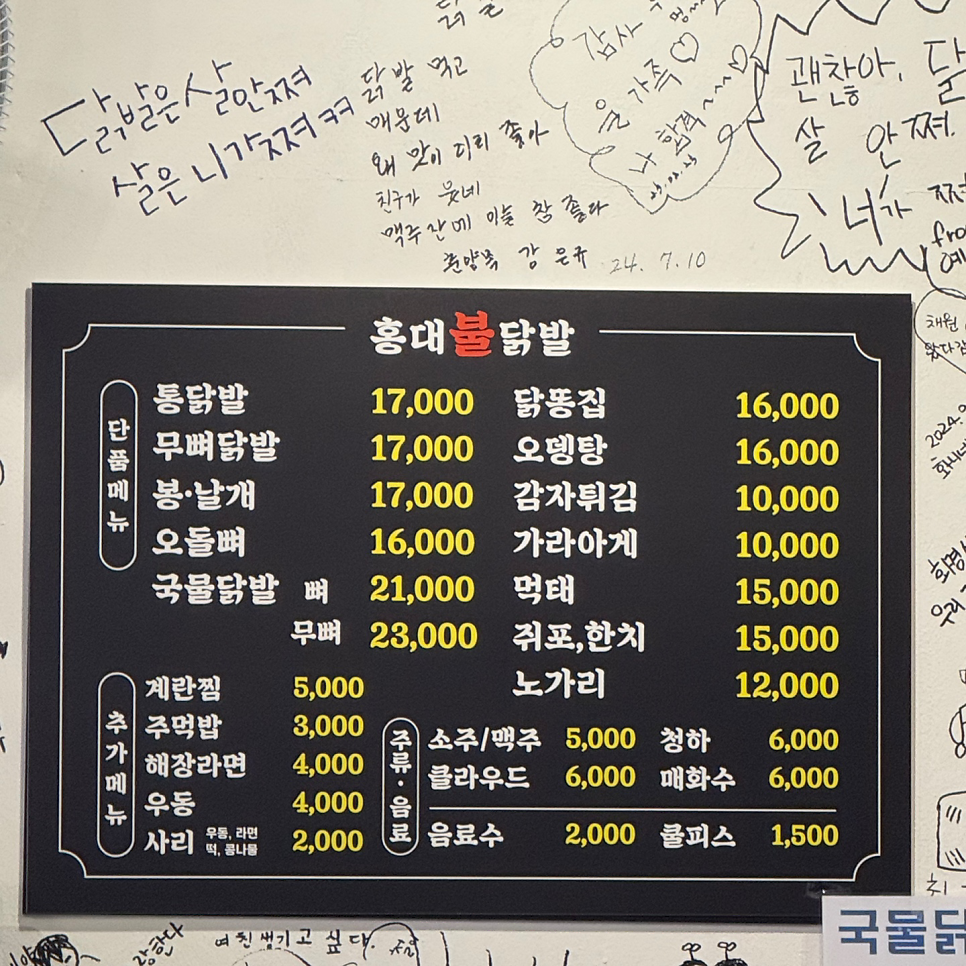 닭발은 살 안쪄
살은 니가쪄 ㅋㅋ
닭발 먹고
매운데
왜 맛이 이리 좋아
친구가 웃네
맥주잔에 이슬 참 좋다
강은규 24. 7. 10
감사
온 가족♡
나 합격~~~~♡
괜찮아.
살 안쪄.
너가
채원
2024.
홍대불닭발
단품메뉴
통닭발 17,000
무뼈닭발 17,000
봉·날개 17,000
오돌뼈 16,000
국물닭발 뼈 21,000
무뼈 23,000
닭똥집 16,000
오뎅탕 16,000
감자튀김 10,000
가라아게 10,000
먹태 15,000
쥐포,한치 15,000
노가리 12,000
추가메뉴
계란찜 5,000
주먹밥 3,000
해장라면 4,000
우동 4,000
사리 우동, 라면 떡, 콩나물 2,000
주류·음료
소주/맥주 5,000 청하 6,000
클라우드 6,000 매화수 6,000
음료수 2,000 쿨피스 1,500
여친 생기고 싶다.
국물닭